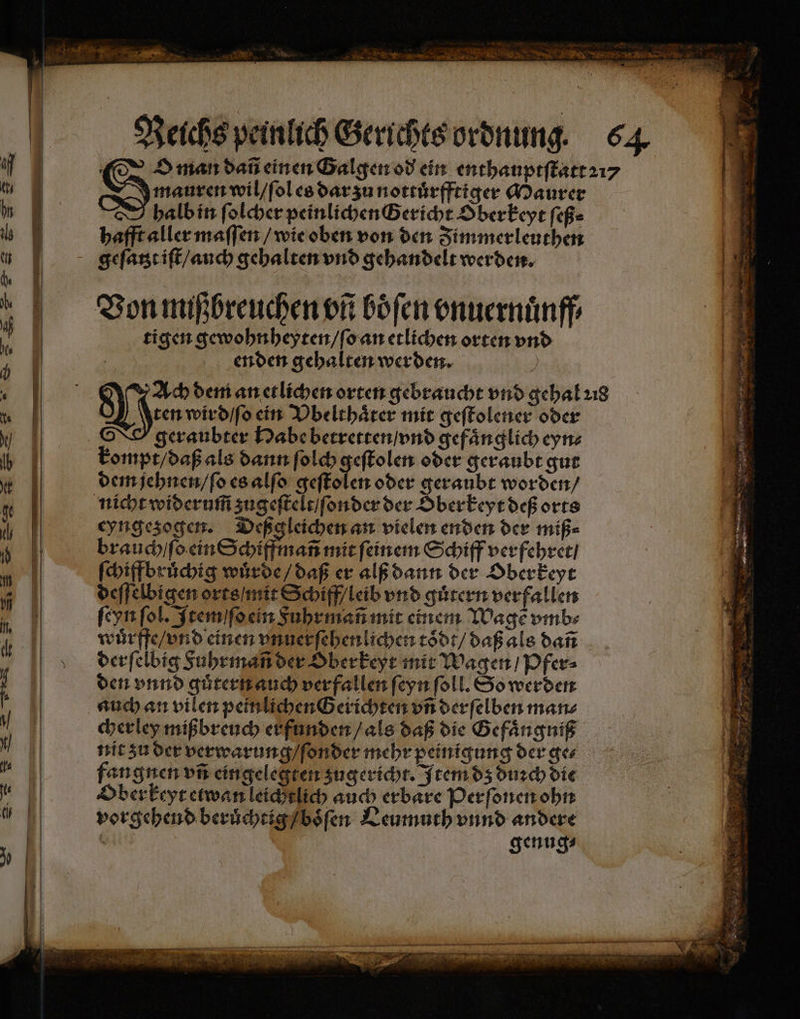 Reichs peinlich Gerichts ordnung. 64
SO man dañ einen Galgen od ein enthauptſtatt 217
mauren wil/ſol es dar zu nottuͤrfftiger Maurer
halb in ſolcher peinlichen Gericht Oberkeyt ſeß-
hafft aller maſſen / wie oben von den Zimmerleuthen
geſatzt iſt/auch gehalten vnd gehandelt werden.
Von mißbreuchen vñ boͤſen vnuernuͤnff-
tigen gewohnheyten/ſo an etlichen orten vnd
enden gehalten werden.
NAch dem an etlichen orten gebraucht vnd gehal 218
ten wird/ſo ein Vbelthaͤter mit geſtolener oder
geraubter Habe betretten/vnd gefaͤnglich eyn-
kompt/daß als dann ſolch geſtolen oder geraubt gut
dem jehnen/ſo es alſo geſtolen oder geraubt worden/
nicht widerum̃ zugeſtelt/ſonder der Oberkeyt deß orts
eyngezogen. Deßgleichen an vielen enden der miß-
brauch/ſo ein Schiffmañ mit ſeinem Schiff verfehret/
ſchiffbruͤchig wuͤrde / daß er alß dann der Oberkeyt
deſſelbigen orts/mit Schiff/leib vnd guͤtern verfallen
ſeyn ſol. Item/ſo ein Fuhrmañ mit einem Wagẽ vmb-
wuͤrffe/vnd einen vnuerſehenlichen toͤdt/ daß als dañ
derſelbig Fuhrmañ der Oberkeyt mit Wagen / Pfer-
den vnnd guͤtern auch verfallen ſeyn ſoll. So werden
auch an vilen peinlichen Gerichten vñ derſelben man-
cherley mißbreuch erfunden / als daß die Gefaͤngniß
nit zu der verwarung/ſonder mehr peinigung der ge-
fangnen vñ eingelegten zugericht. Item dz durch die
Oberkeyt etwan leichtlich auch erbare Perſonen ohn
vorgehend beruͤchtig/boͤſen Leumuth vnnd andere
genug-